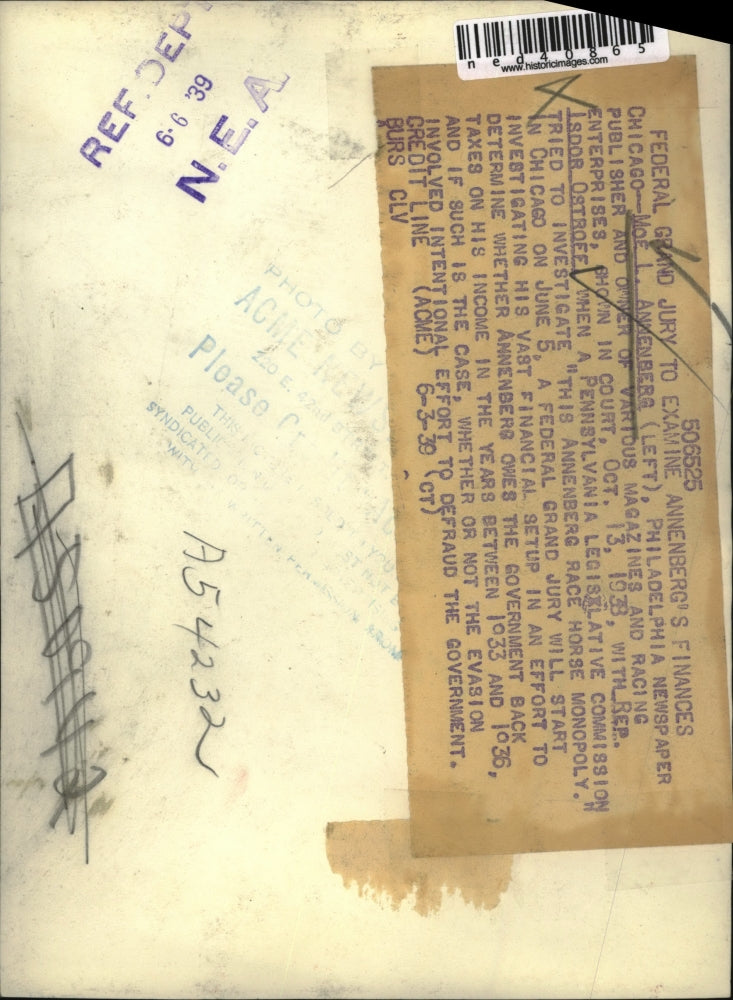 ned40865
www.historicimages.com
REF. DEP
6-6 '39
N.E.A
506525
FEDERAL GRAND JURY TO EXAMINE ANNENBERG'S FINANCES
CHICAGO--MOE L. ANNENBERG (LEFT), PHILADELPHIA NEWSPAPER
PUBLISHER AND OWNER OF VARIOUS MAGAZINES AND RACING
ENTERPRISES, SHOWN IN COURT, OCT. 13, 1938, WITH REP.
ISDOR OSTROFF, WHEN A PENNSYLVANIA LEGISLATIVE COMMISSION
TRIED TO INVESTIGATE "THIS ANNENBERG RACE HORSE MONOPOLY."
IN CHICAGO ON JUNE 5, A FEDERAL GRAND JURY WILL START
INVESTIGATING HIS VAST FINANCIAL SETUP IN AN EFFORT TO
DETERMINE WHETHER ANNENBERG OWES THE GOVERNMENT BACK
TAXES ON HIS INCOME IN THE YEARS BETWEEN 1933 AND 1936,
AND IF SUCH IS THE CASE, WHETHER OR NOT THE EVASION
INVOLVED INTENTIONAL EFFORT TO DEFRAUD THE GOVERNMENT.
CREDIT LINE (ACME) 6-3-39 (CT)
BURS CLV
PHOTO BY
ACME
Please
THIS
SYNDICATED
A54232